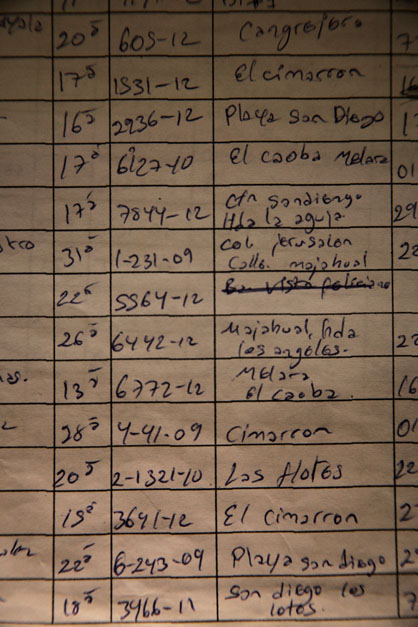 20 5 605-12 Cangrejera 7
17 5 1531-12 El cimarron
16 5 2936-12 Playa San Diego 1
17 5 6127-10 El caoba Melara 01
17 5 7844-12 Ctn sandiengo 29
Hda la aguja
tro 31 5 1-231-09 Col jerusalon 22
Calle. majahual
22 5 5564-12
26 5 6442-12 Majahual, hda 22
los angeles.
as. 13 5 6772-12 Melara 16
El caoba.
28 5 4-41-09 Cimarron 01
20 5 2-1321-10 Las flores 22
19 5 3641-12 El cimarron 2
22 5 6-243-09 Playa san diego 2
18 5 3466-11 San diego los 7
lotos.